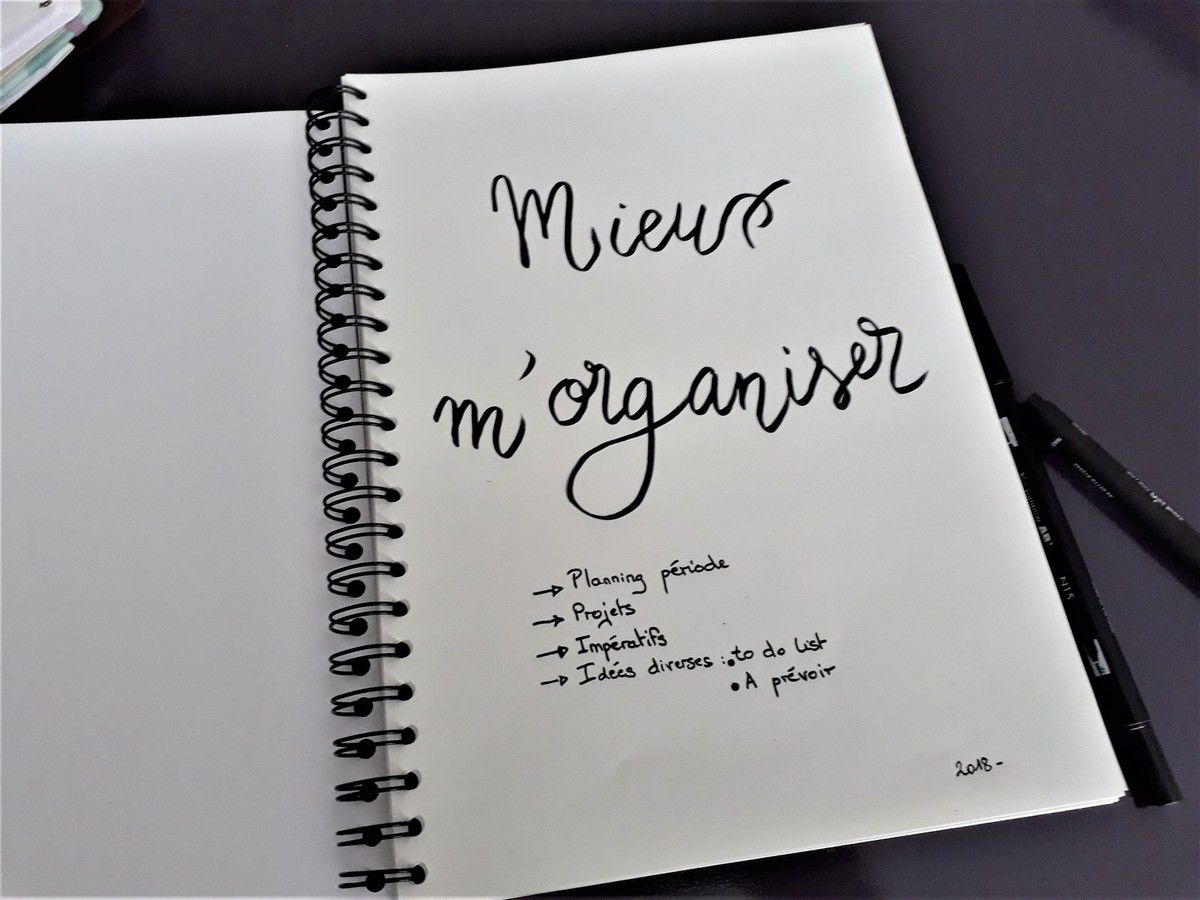 Mieux
m'organiser
→ Planning période
→ Projets
→ Impératifs
→ Idées diverses : • to do list
• A prévoir
2018-
AB
N15